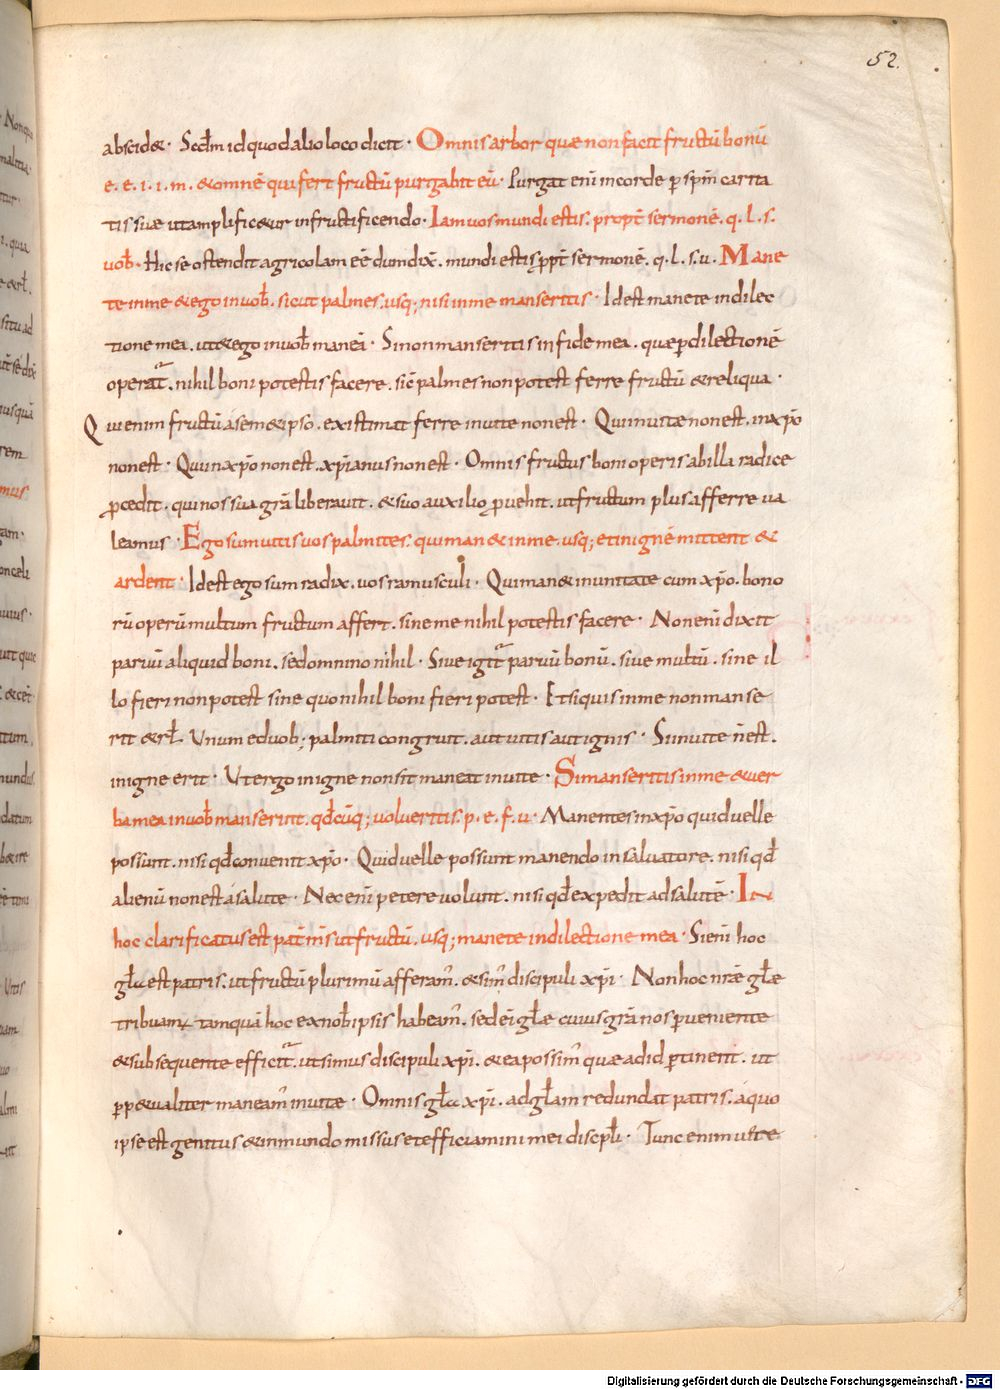 52.
abscidet. Secdm id quod alio loco dicit. Omnis arbor quæ non facit fructū bonū
e. e. i. i. m. & omnē qui fert fructū purgabit eū. Purgat eni in corde p spm carita
tis suæ ut amplificetur in fructificendo. Iam vos mundi estis. propt sermonē. q. l. s.
vob. Hic se ostendit agricolam eē dum dix. mundi estis ppt sermonē. q. l. s. u. Mane
te in me & ego in vob. sicut palmes. usq; nisi in me manseritis. Id est manete in dilec
tione mea. ut & ego in vob maneā. Si non manseritis in fide mea. quæ p dilectionē
operat. nihil boni potestis facere. sic palmes non potest ferre fructū & reliqua.
Qui enim fructū a sem&ipso. existimat ferre in vite non est. Qui in vitæ non est. in xpo
non est. Qui in xpo non est. xpianus non est. Omnis fructus boni operis ab illa radice
pcedit. qui nos sua gra liberavit. & suo auxilio pvehit. ut fructum plus afferre va
leamus. Ego sum vitis vos palmites. qui man& in me. usq; et in ignē mittent &
ardent. Id est ego sum radix. vos ramusculi. Qui man& in unitate cum xpo. bono
rū operū multum fructum affert. sine me nihil potestis facere. Non eni dixit
parvū aliquid boni. sed omnino nihil. Sive igit parvū bonū. sive multū. sine il
lo fieri non potest sine quo nihil boni fieri potest. Et si quis in me non manse
rit & rl. Unum e duob; palmiti congruit. aut vitis aut ignis. Si in vite n est.
in igne erit. Ut ergo in igne non sit maneat in vite. Si manseritis in me & ver
ba mea in vob manserint. qd cūq; volueritis. p. e. f. v. Manentes in xpo quid velle
possunt. nisi qd convenit xpo. Quid velle possunt manendo in salvatore. nisi qd
alienū non est a salute. Nec eni petere volunt. nisi qd expedit ad salutē. In
hoc clarificatus est pat ms ut fructū. usq; manete in dilectione mea. Si eni hoc
gla est patris. ut fructū plurimū afferam. & sim discipuli xpi. Non hoc nræ glæ
tribuam. tamquā hoc ex nob ipsis habeam. sed ei glæ cuius gra nos pveniente
& subsequente efficit. ut simus discipuli xpi. & ea possim quæ ad id ptinent. ut
pp&ualiter maneam in vitæ. Omnis gla xpi. ad glam redundat patris. a quo
ipse est genitus & in mundo missus et efficiamini mei discpli. Tunc enim veræ
Digitalisierung gefördert durch die Deutsche Forschungsgemeinschaft - DFG